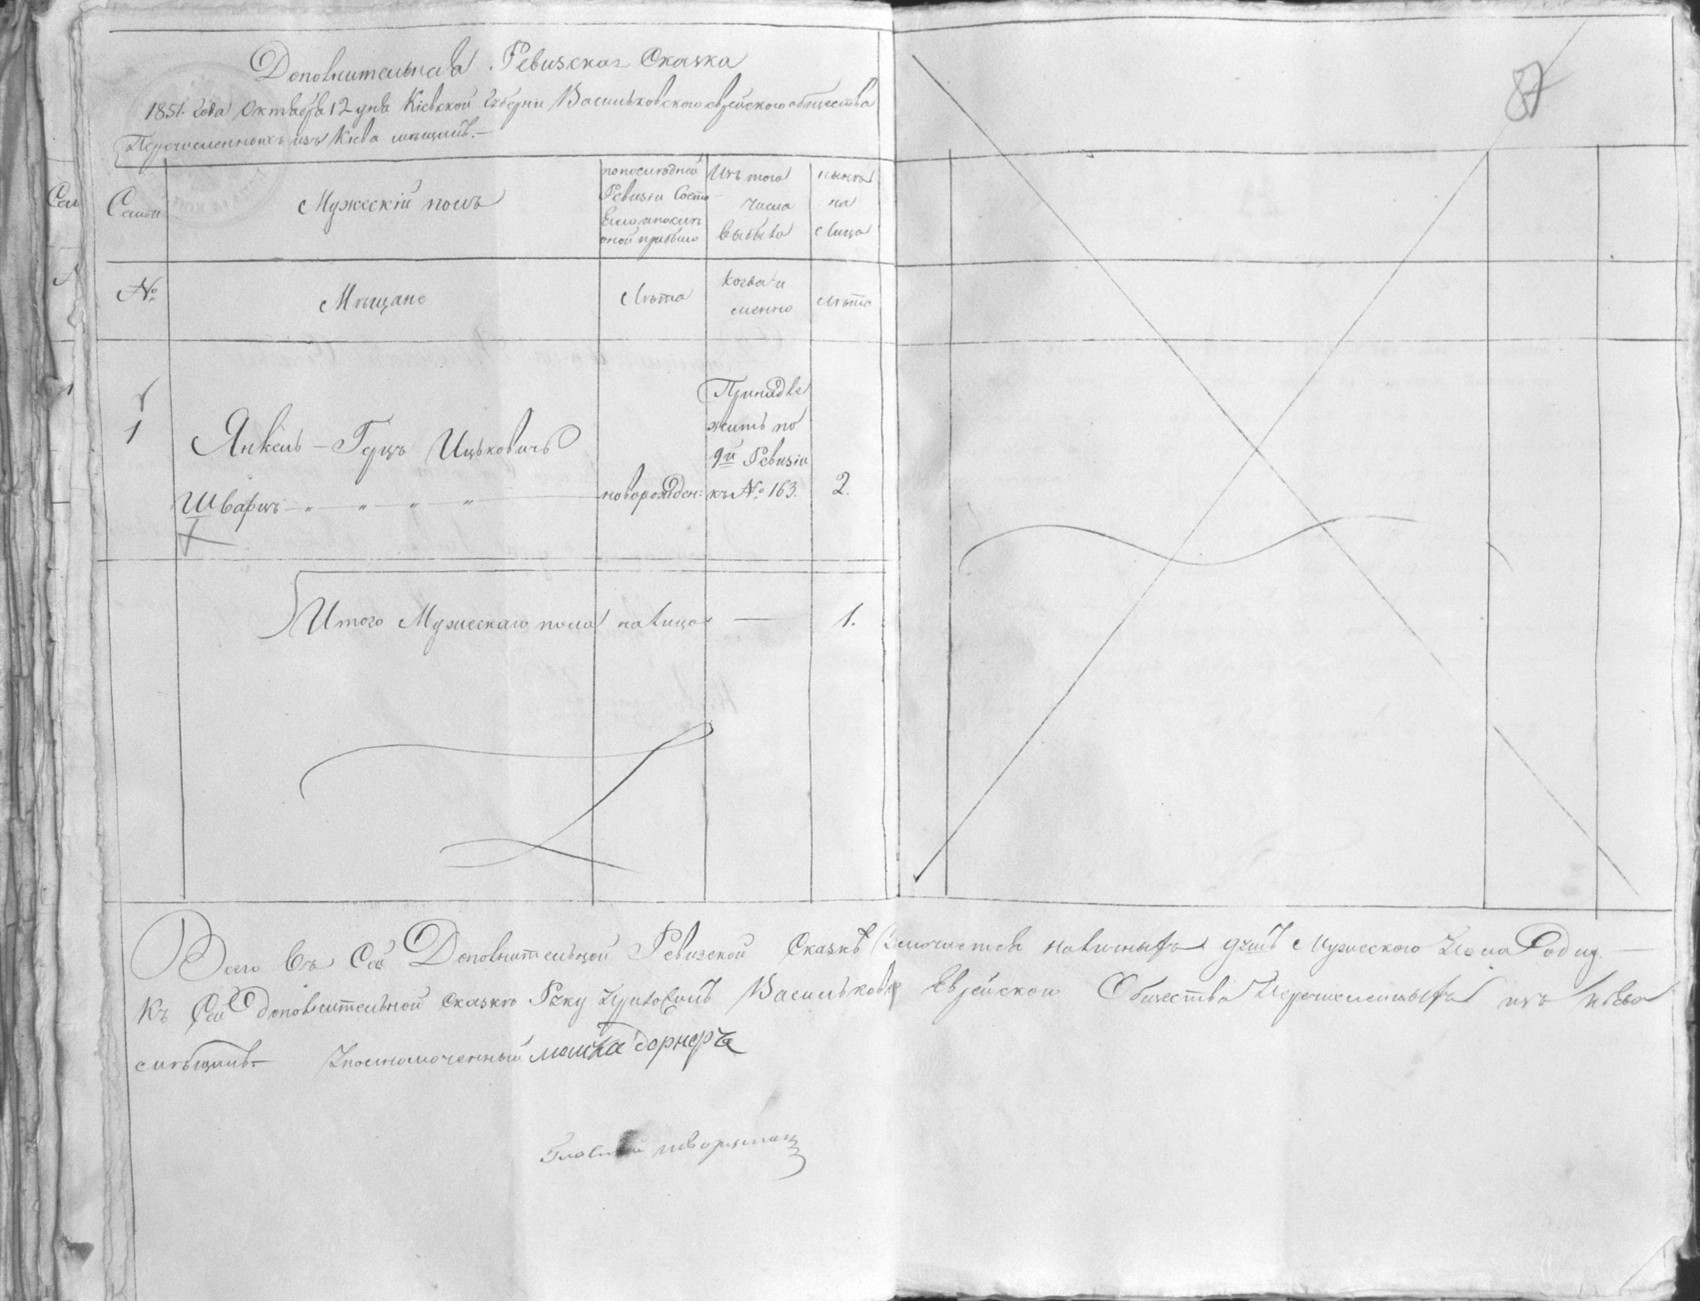 87
Дополнительная Ревизская Сказка
1851. года Октября 12 дня Кіевской Губерніи Васильковскаго еврейскаго общества
Перечисленныхъ изъ Кіева мѣщанъ.—
Семьи
Мужескій полъ
по последней
Ревизіи Состо-
яло и после
оной прибыло
Изъ того
числа
выбыло
нынѣ
на
лицо
№
Мѣщане
Лѣта
Когда и
менно
Лѣта
1
Янкель – Герцъ Ицьковичъ
Шварцъ — „ — „ — „ — „
новорожден:
Принадле
житъ по
9й Ревизіи
къ № 163.
2.
Итого Мужескаго пола на лицо —
1.
Всего въ Сей Дополнительной Ревизской Сказкѣ наличныхъ душъ Мужескаго Пола Одна. —
Къ Сей дополнительной сказкѣ Руку Приложилъ Васильковскаго Еврейскаго Общества Перечисленныхъ изъ Кіева
мѣщанъ — Уполномоченный мошка борнеръ